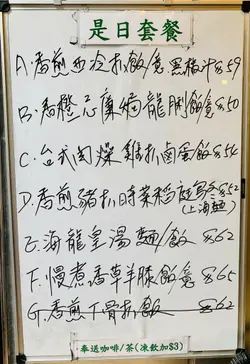 是日套餐
A. 香煎西冷扒飯/意 黑椒汁 $59
B. 香橙忌廉焗龍脷飯意 $50
C. 台式肉燥雞扒鹵蛋飯 $54
D. 香煎豬扒時菜稻庭烏冬 $52
(上海麵)
E. 海龍皇湯麵/飯 $62
F. 慢煮香草羊膝飯意 $65
G. 香煎牛骨扒飯 $62
奉送咖啡/茶(凍飲加$3)